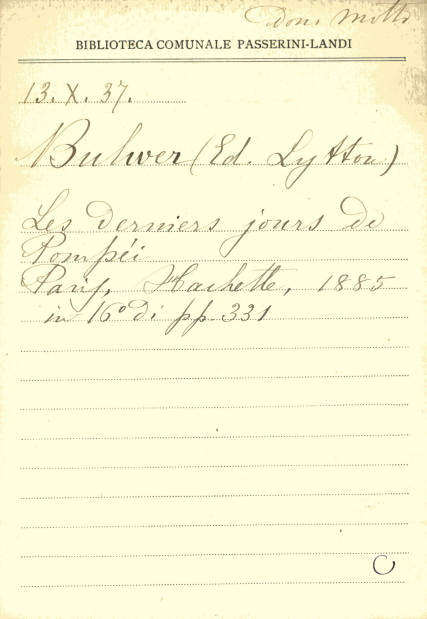 Dono Motti
BIBLIOTECA COMUNALE PASSERINI-LANDI
13. X. 37.
Bulwer (Ed. Lytton)
Les derniers jours de
Pompéi
Paris, Hachette, 1885
in 16° di pp. 331